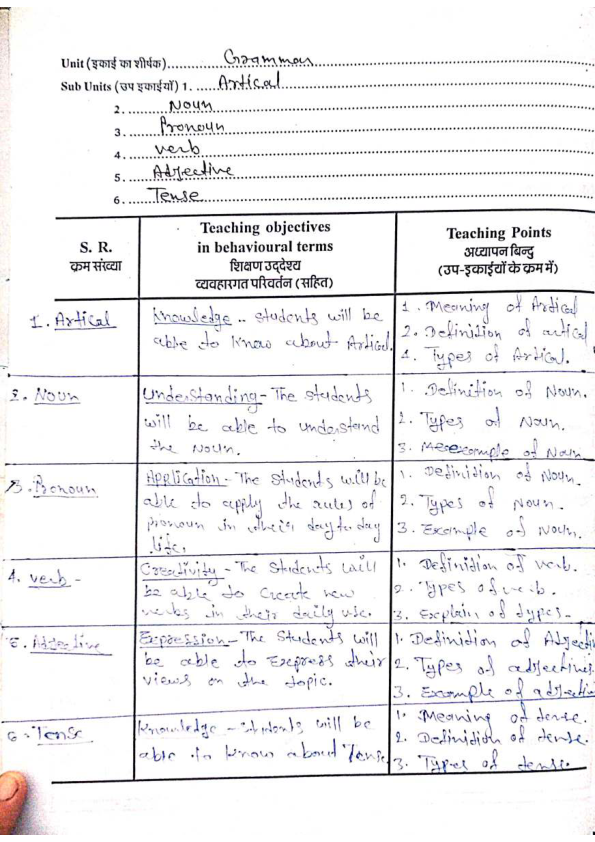 Unit (इकाई का शीर्षक) Grammar
Sub Units (उप इकाईयाँ) 1. Artical
2. Noun
3. Pronoun
4. verb
5. Adjective
6. Tense
S. R.
क्रम संख्या
Teaching objectives
in behavioural terms
शिक्षण उद्देश्य
व्यवहारगत परिवर्तन (सहित)
Teaching Points
अध्यापन बिन्दु
(उप-इकाईयों के क्रम में)
1. Artical
Knowledge .. Students will be
able to know about Artical.
1. Meaning of Artical
2. Definition of artical
1. Types of Artical.
2. Noun
Understanding - The students
will be able to understand
the Noun.
1. Definition of Noun.
2. Types of Noun.
3. example of Noun
3. Pronoun
Application - The students will be
able to apply the rules of
pronoun in their day to day
life.
1. Definition of Noun.
2. Types of Noun.
3. Example of Noun.
4. verb -
Creativity - The Students will
be able to create new
verbs in their daily use.
1. Definition of verb.
2. Types of verb.
3. Explain of types -
5. Adjective
Expression - The Students will
be able to Express their
views on the topic.
1. Definition of Adjectiv
2. Types of adjectives.
3. Example of adjectiv
6. Tense
Knowledge - Students will be
able to know about Tense.
1. Meaning of tense.
2. Definition of tense.
3. Types of tense.